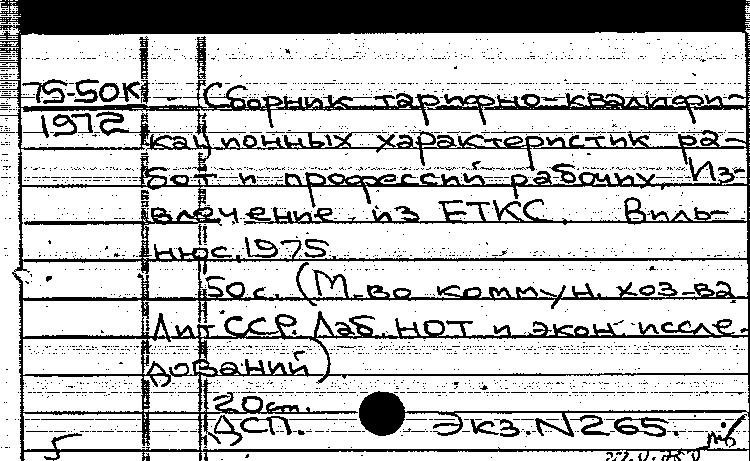 75-50К Сборник тарифно-квалифи-
1972 кационных характеристик ра-
бот и профессий рабочих. Из-
влечение из ЕТКС. Виль-
нюс, 1975
50с. (М-во коммун. хоз-ва
Лит ССР. Лаб. НОТ и экон исcле-
дований).
20см.
ДСП. Экз. N265.
5